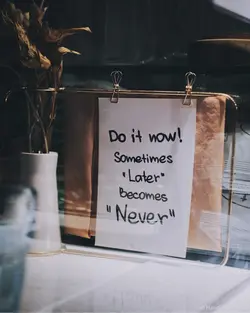 Do it now!
Sometimes
"Later"
Becomes
"Never"